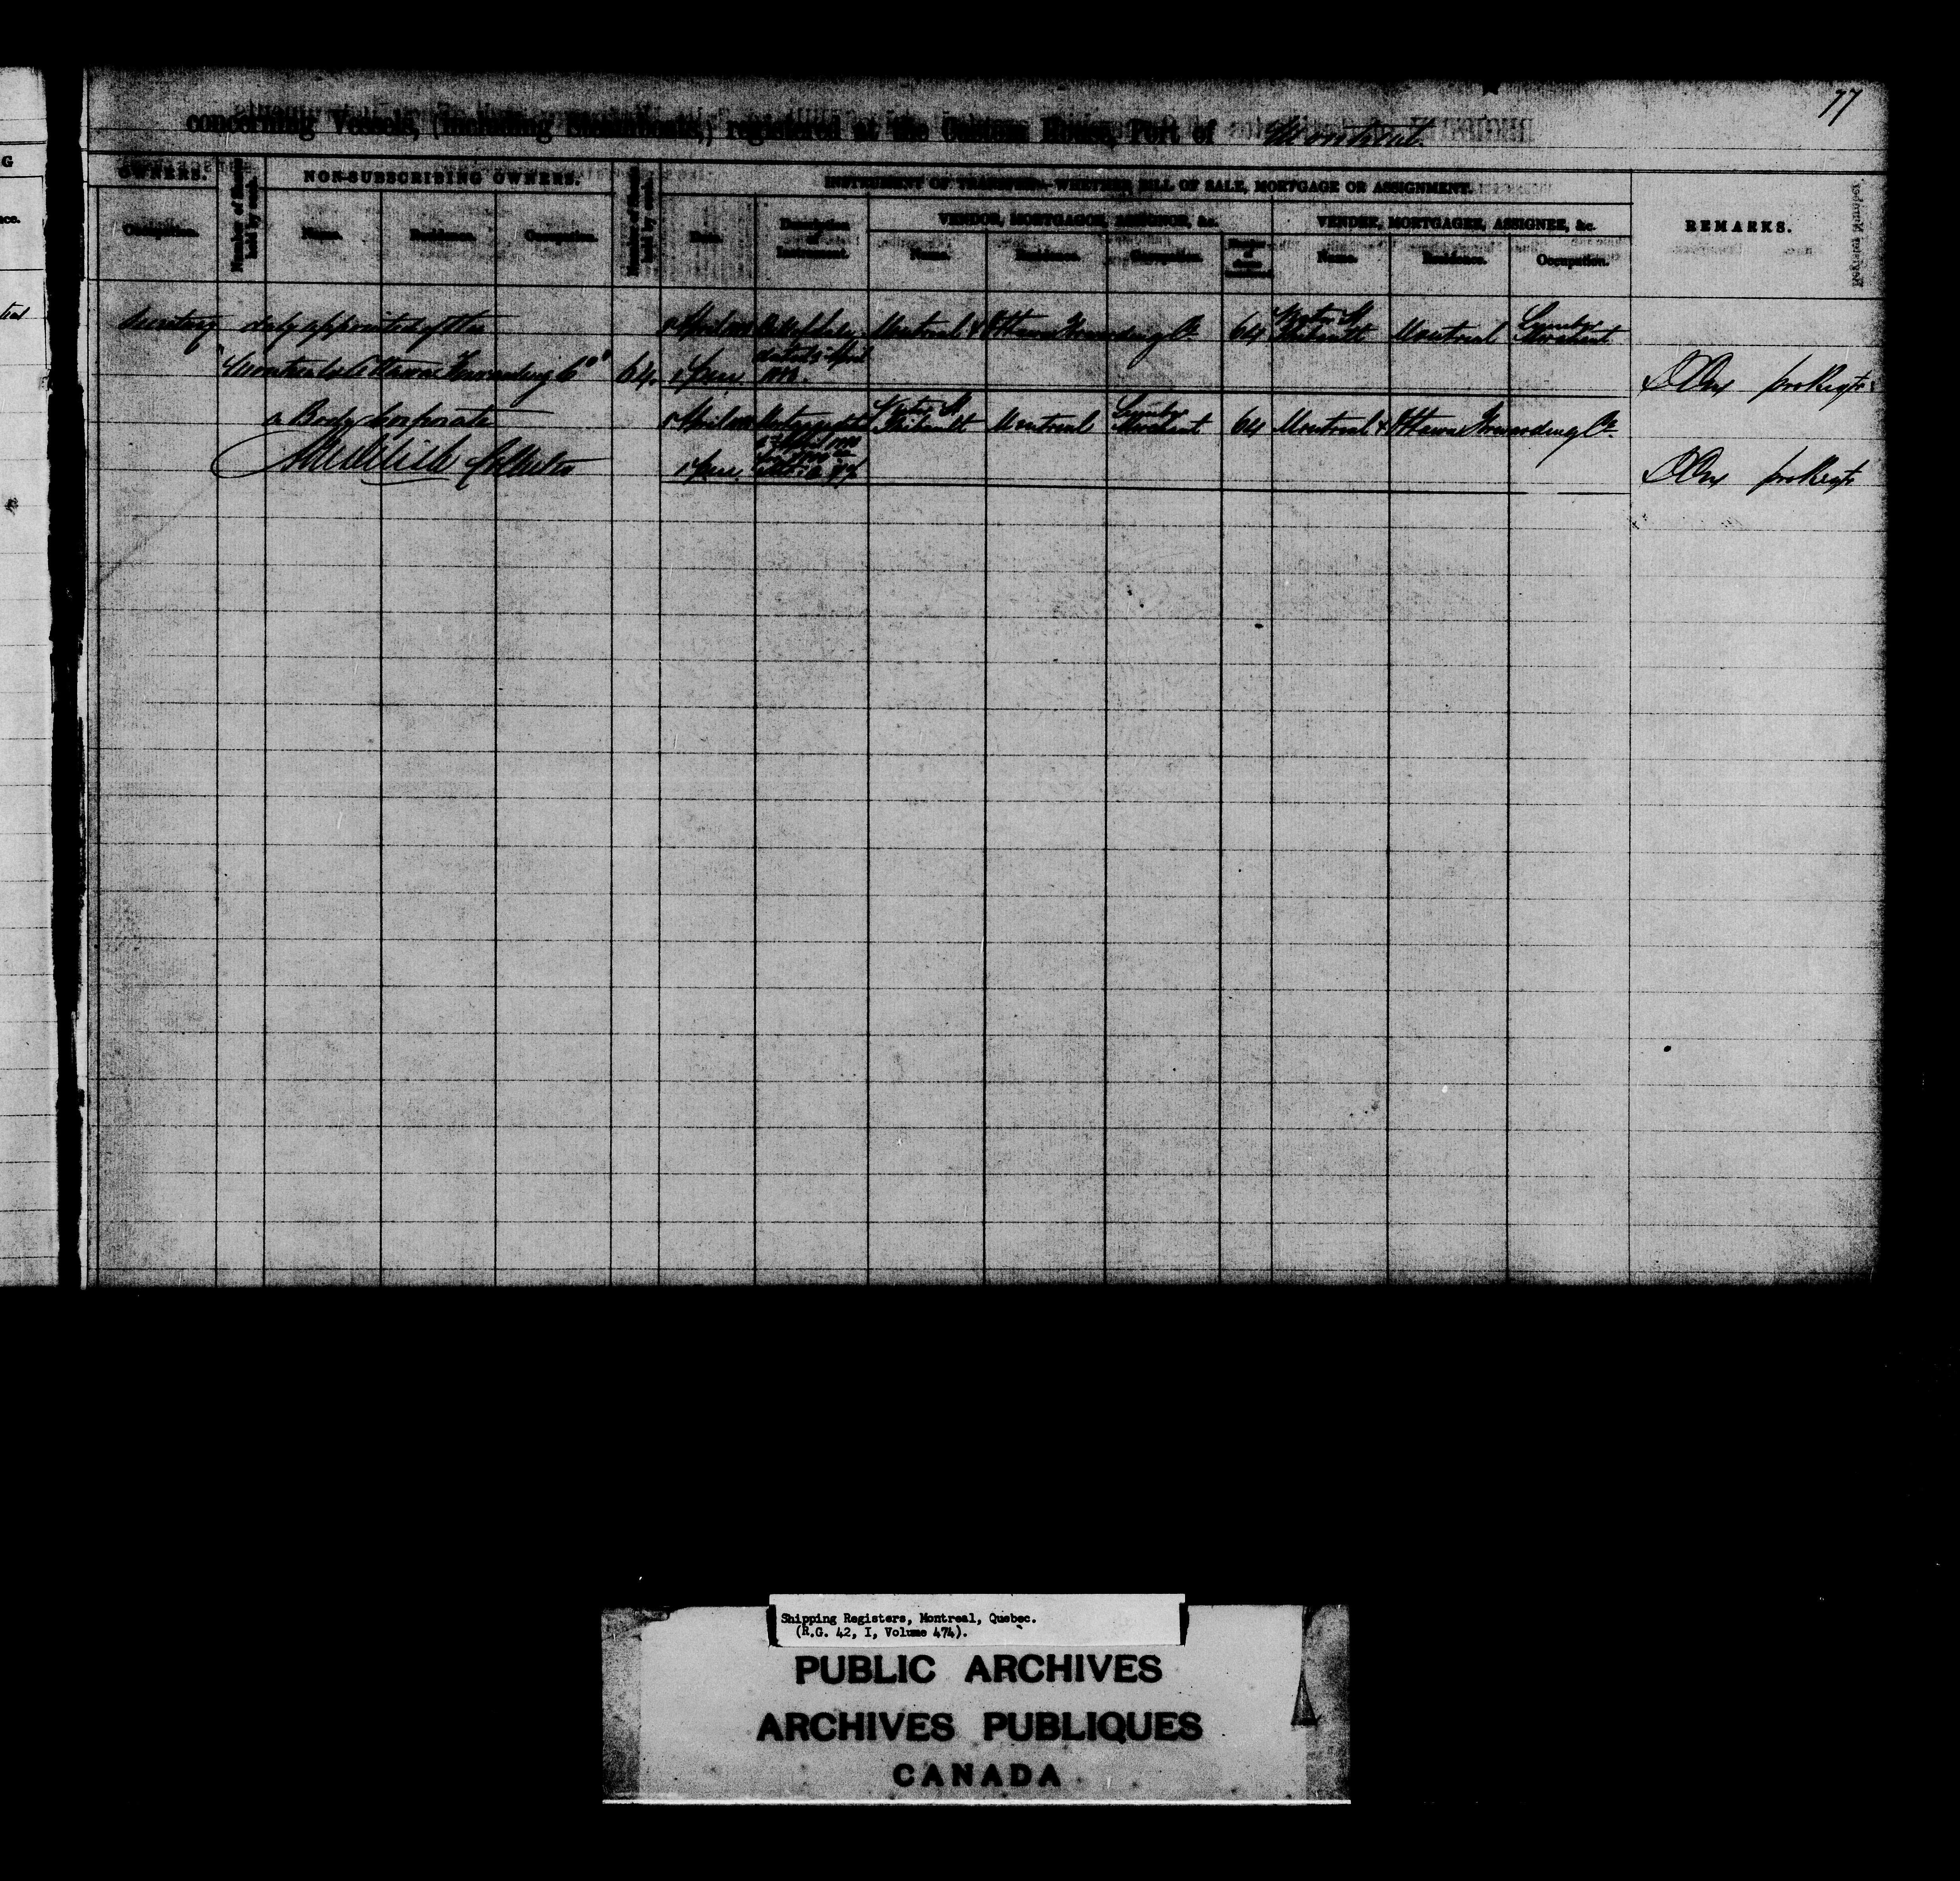 77
concerning Vessels, (including Steamboats,) registered at the Custom House, Port of Montreal.
OWNERS.
Occupation.
Number of Shares held by each.
NON-SUBSCRIBING OWNERS.
Name.
Residence.
Occupation.
Number of Shares held by each.
INSTRUMENT OF TRANSFER—WHETHER BILL OF SALE, MORTGAGE OR ASSIGNMENT.
Date.
Description of Instrument.
VENDOR, MORTGAGOR, ASSIGNOR, &c.
Name.
Residence.
Occupation.
VENDEE, MORTGAGEE, ASSIGNEE, &c.
Name.
Residence.
Occupation.
REMARKS.
Secretary duly appointed of the
"Montreal & Ottawa Forwarding Co" 64.
a Body Corporate
April Bill of Sale Montreal & Ottawa Forwarding Co 64 Thibault Montreal Lumber Merchant
dated 5 April
April Mortgage Thibault Montreal Lumber Merchant 64 Montreal & Ottawa Forwarding Co
Shipping Registers, Montreal, Quebec.
(R.G. 42, I, Volume 474).
PUBLIC ARCHIVES
ARCHIVES PUBLIQUES
CANADA